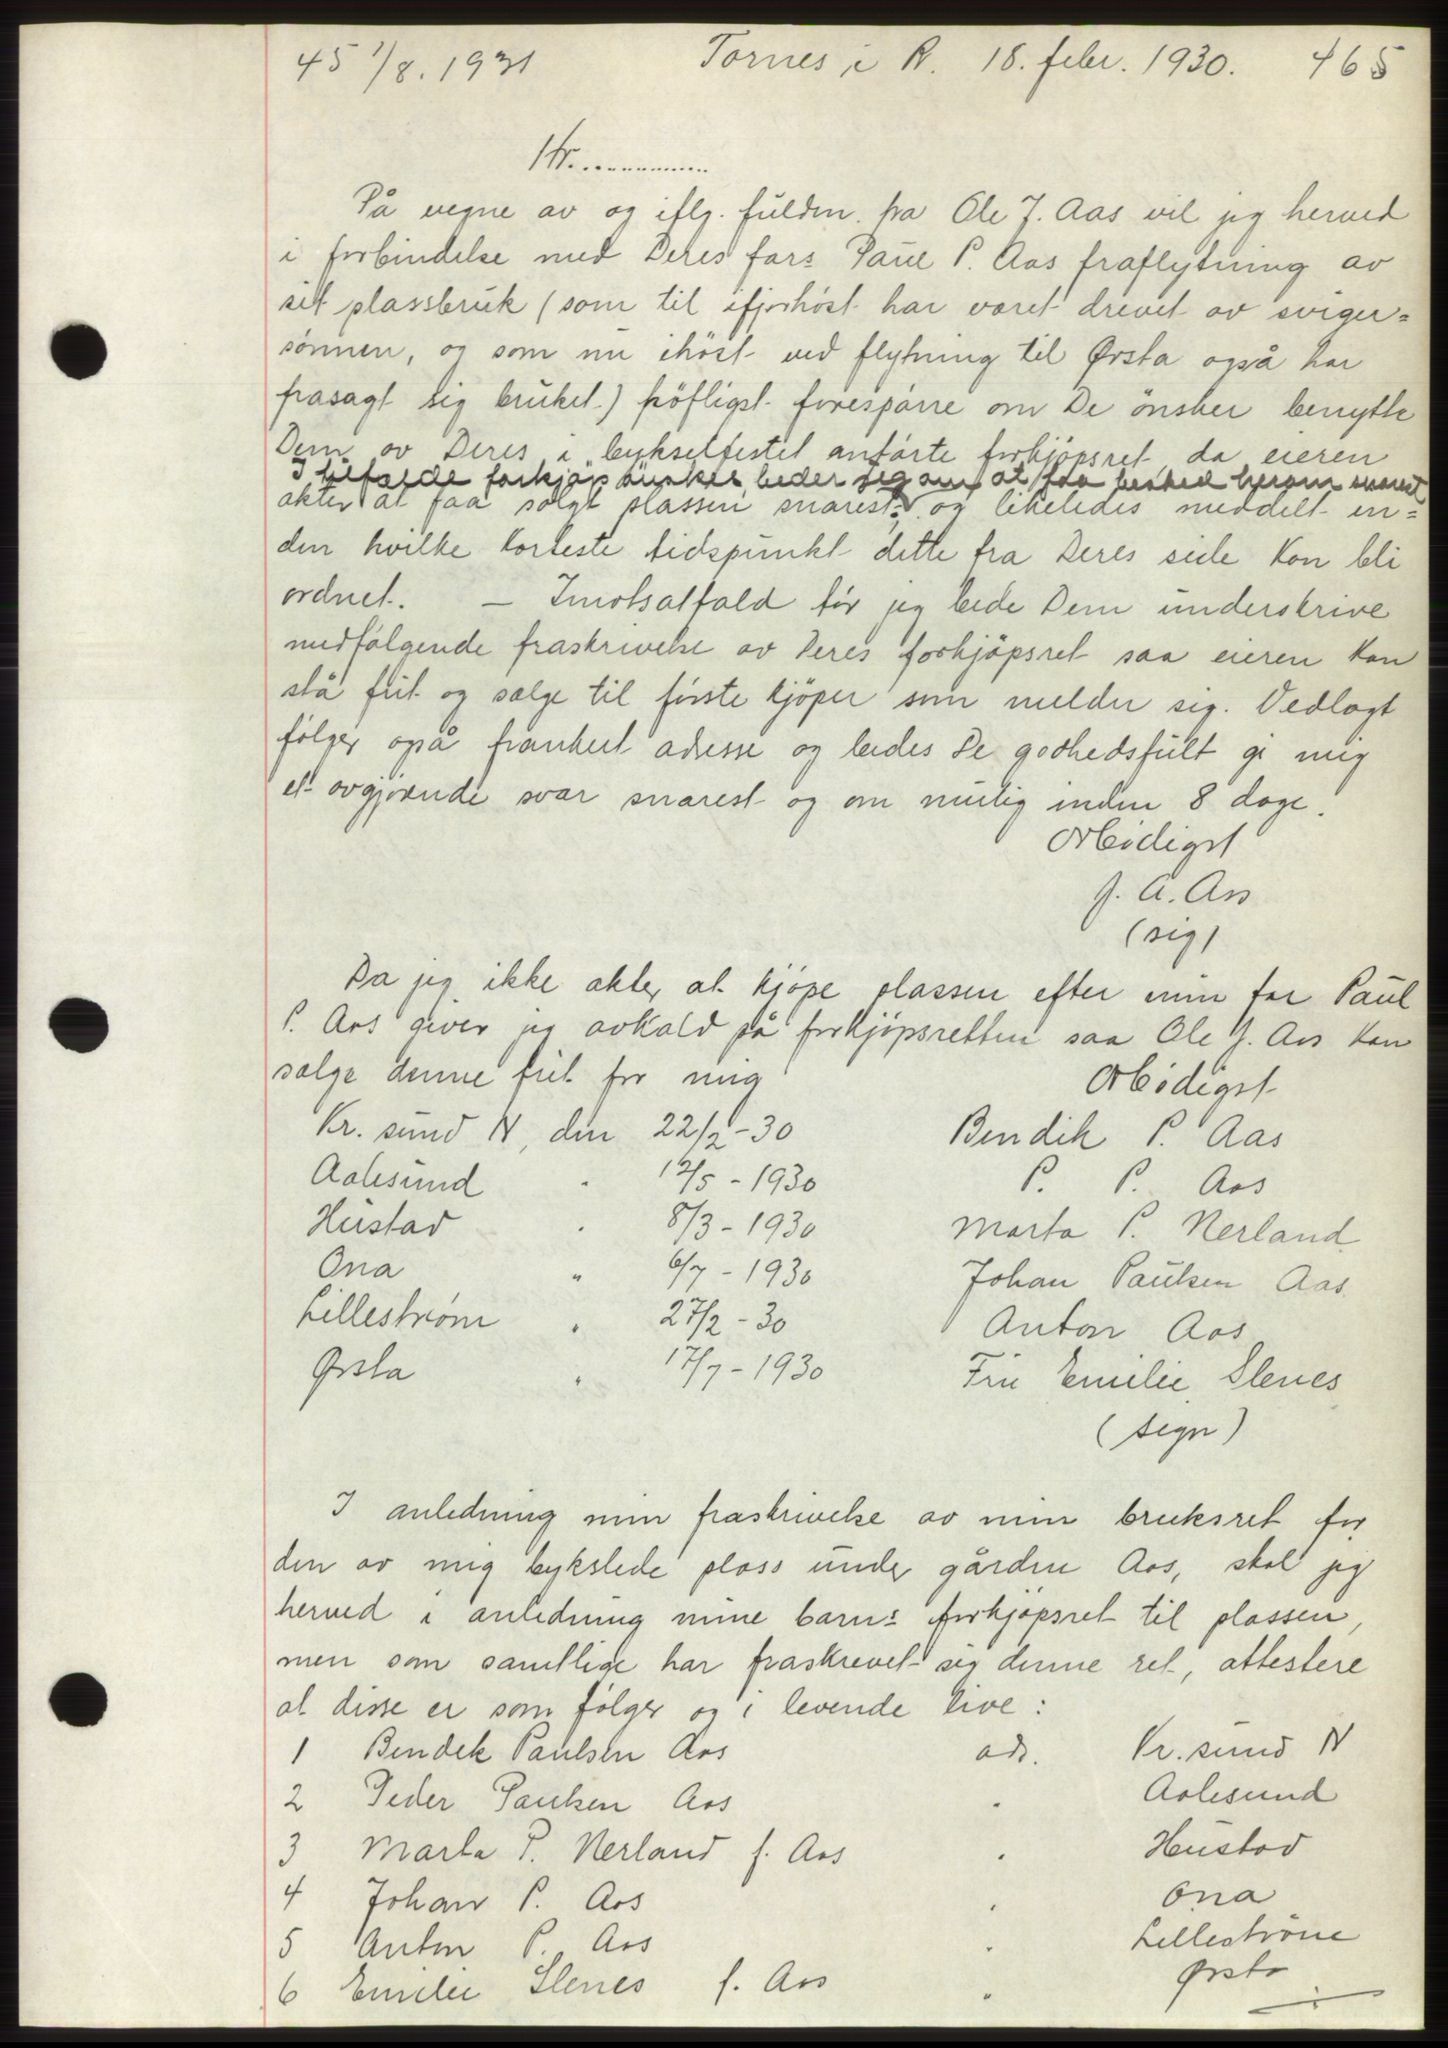 45 1/8. 1931 Tornes i R. 18. febr. 1930. 465
Hr. ............
På vegne av og iflg. fuldm. fra Ole J. Aas vil jeg herved
i forbindelse med Deres fars Paul P. Aas fraflytning av
sit plassbruk (som til ifjorhöst har været drevet av sviger=
sönnen, og som nu ihöst ved flytning til Ørsta også har
frasagt sig bruket) höfligst forespörre om De önsker benytte
Dem av Deres i bykselfestet anförte forkjöpsret da eieren
I tilfælde forkjøp önskes, beder jeg om at faa besked herom snarest
akter at faa solgt plassen snarest, og likeledes meddelt in=
den hvilke korteste tidspunkt dette fra Deres side kan bli
ordnet. – Imotsatfald tör jeg bede Dem underskrive
medfölgende fraskrivelse av Deres forkjöpsret saa eieren kan
stå frit og sælge til förste kjöper som melder sig. Vedlagt
fölger også frankert adresse og bedes De godhedsfult gi mig
et avgjörende svar snarest og om mulig inden 8 dage.
Ærbödigst
J. A. Aas
(sig)
Da jeg ikke akter at kjöpe plassen efter min far Paul
P. Aas giver jeg avkald på forkjöpsretten saa Ole J. Aas kan
sælge denne frit for mig
Ærbödigst
Kr. sund N, den 22/2 - 30 Bendik P. Aas
Aalesund " 12/5 - 1930 P. P. Aas
Hustad " 8/3 - 1930 Marta P. Nerland
Ona " 6/7 - 1930 Johan Paulsen Aas
Lilleström " 27/2 - 30 Anton Aas
Ørsta " 17/7 - 1930 Fru Emilie Slenes
(sign)
I anledning min fraskrivelse av min bruksret for
den av mig bykslede plass under gården Aas, skal jeg
herved i anledning mine barns forkjöpsret til plassen,
men som samtlige har fraskrevet sig denne ret, attestere
at disse er som fölger og i levende live:
1 Bendik Paulsen Aas adr. Kr. sund N
2 Peder Paulsen Aas " Aalesund
3 Marta P. Nerland f. Aas " Hustad
4 Johan P. Aas " Ona
5 Anton P. Aas " Lilleström
6 Emilie Slenes f. Aas " Ørsta